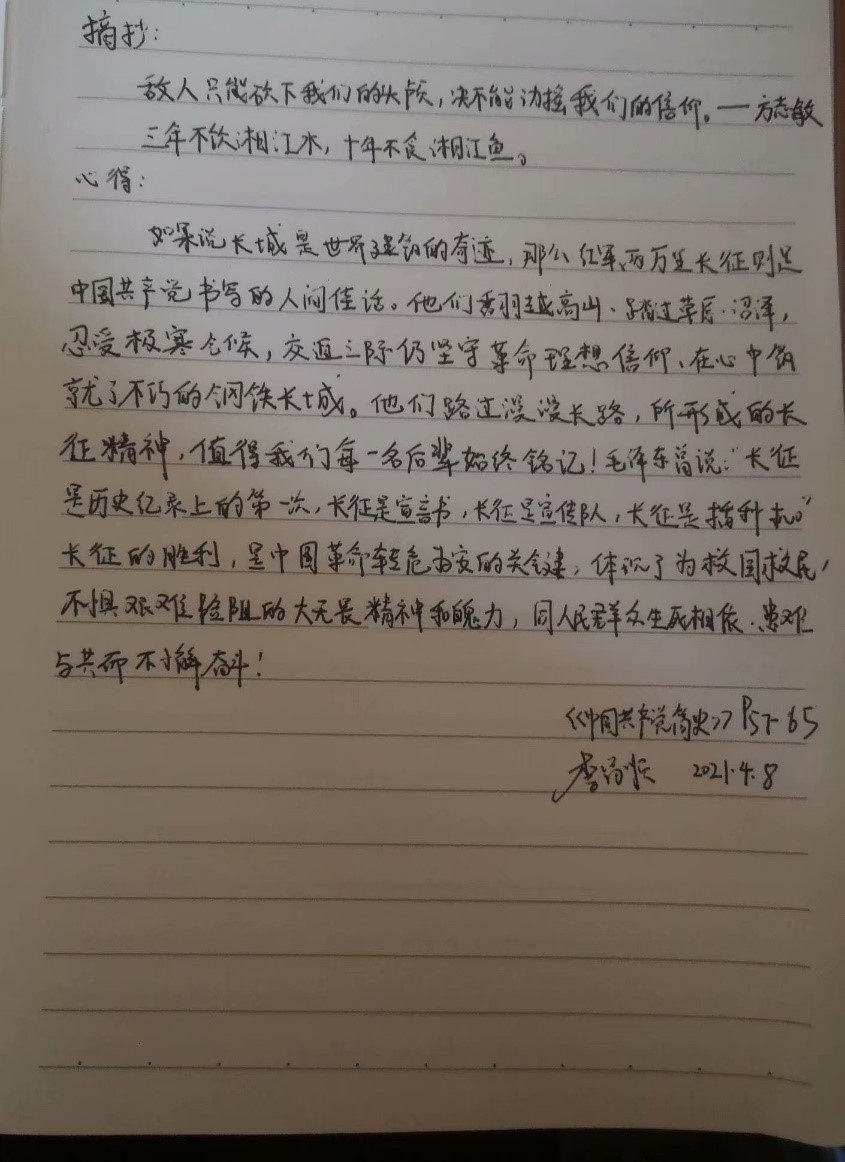 摘抄:
敌人只能砍下我们的头颅,决不能动摇我们的信仰。—方志敏
三年不饮湘江水,十年不食湘江鱼。
心得:
如果说长城是世界建筑的奇迹,那么红军两万里长征则是
中国共产党书写的人间佳话。他们翻越高山、踏过草原、沼泽,
忍受极寒气候,交迫之际仍坚守革命理想信仰、在心中铸
就了不朽的钢铁长城。他们路过漫漫长路,所形成的长
征精神,值得我们每一名后辈始终铭记!毛泽东曾说:“长征
是历史纪录上的第一次,长征是宣言书,长征是宣传队,长征是播种机”
长征的胜利,是中国革命转危为安的关键,体现了为救国救民,
不惧艰难险阻的大无畏精神和魄力,同人民群众生死相依、患难
与共而不懈奋斗!
《中国共产党简史》P57-65
李 2021.4.8